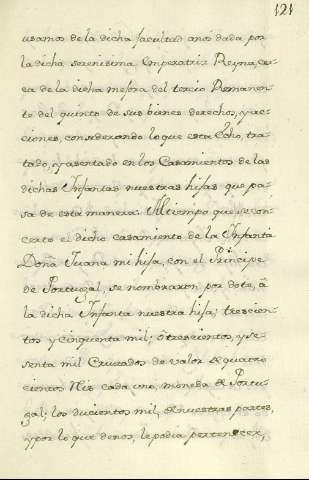 121
usamos de la dicha facultad anos dada por
la dicha serenisima Emperatriz Reyna, cer
ca de la dicha mejora del tercio Remanen
te del quinto de sus bienes derechos, y ac
ciones, considerando lo que esta hecho, tra
tado, y asentado en los Casamientos de las
dichas Infantas nuestras hijas que pa
sa de esta manera. Al tiempo que se con
certo el dicho casamiento de la Infanta
Doña Juana mi hija, con el Principe
de Portugal, se nombraron por dote, â
la dicha Infanta nuestra hija; trescien
tos y cinquenta mil; ô trescientos, y se
senta mil Cruzados de valor de quatro
cientos Mrs cada uno, moneda de Portu
gal; los ducientos mil, de nuestras partes,
y por lo que de nos, le podia pertenecer,